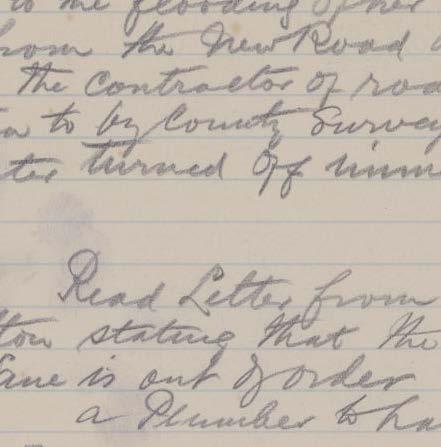 to the flooding of her
from the New Road
the contractor of roa
to by County Survey
ter turned off imm
Read Letter from
tton stating that the
ane is out of order
a Plumber to ha